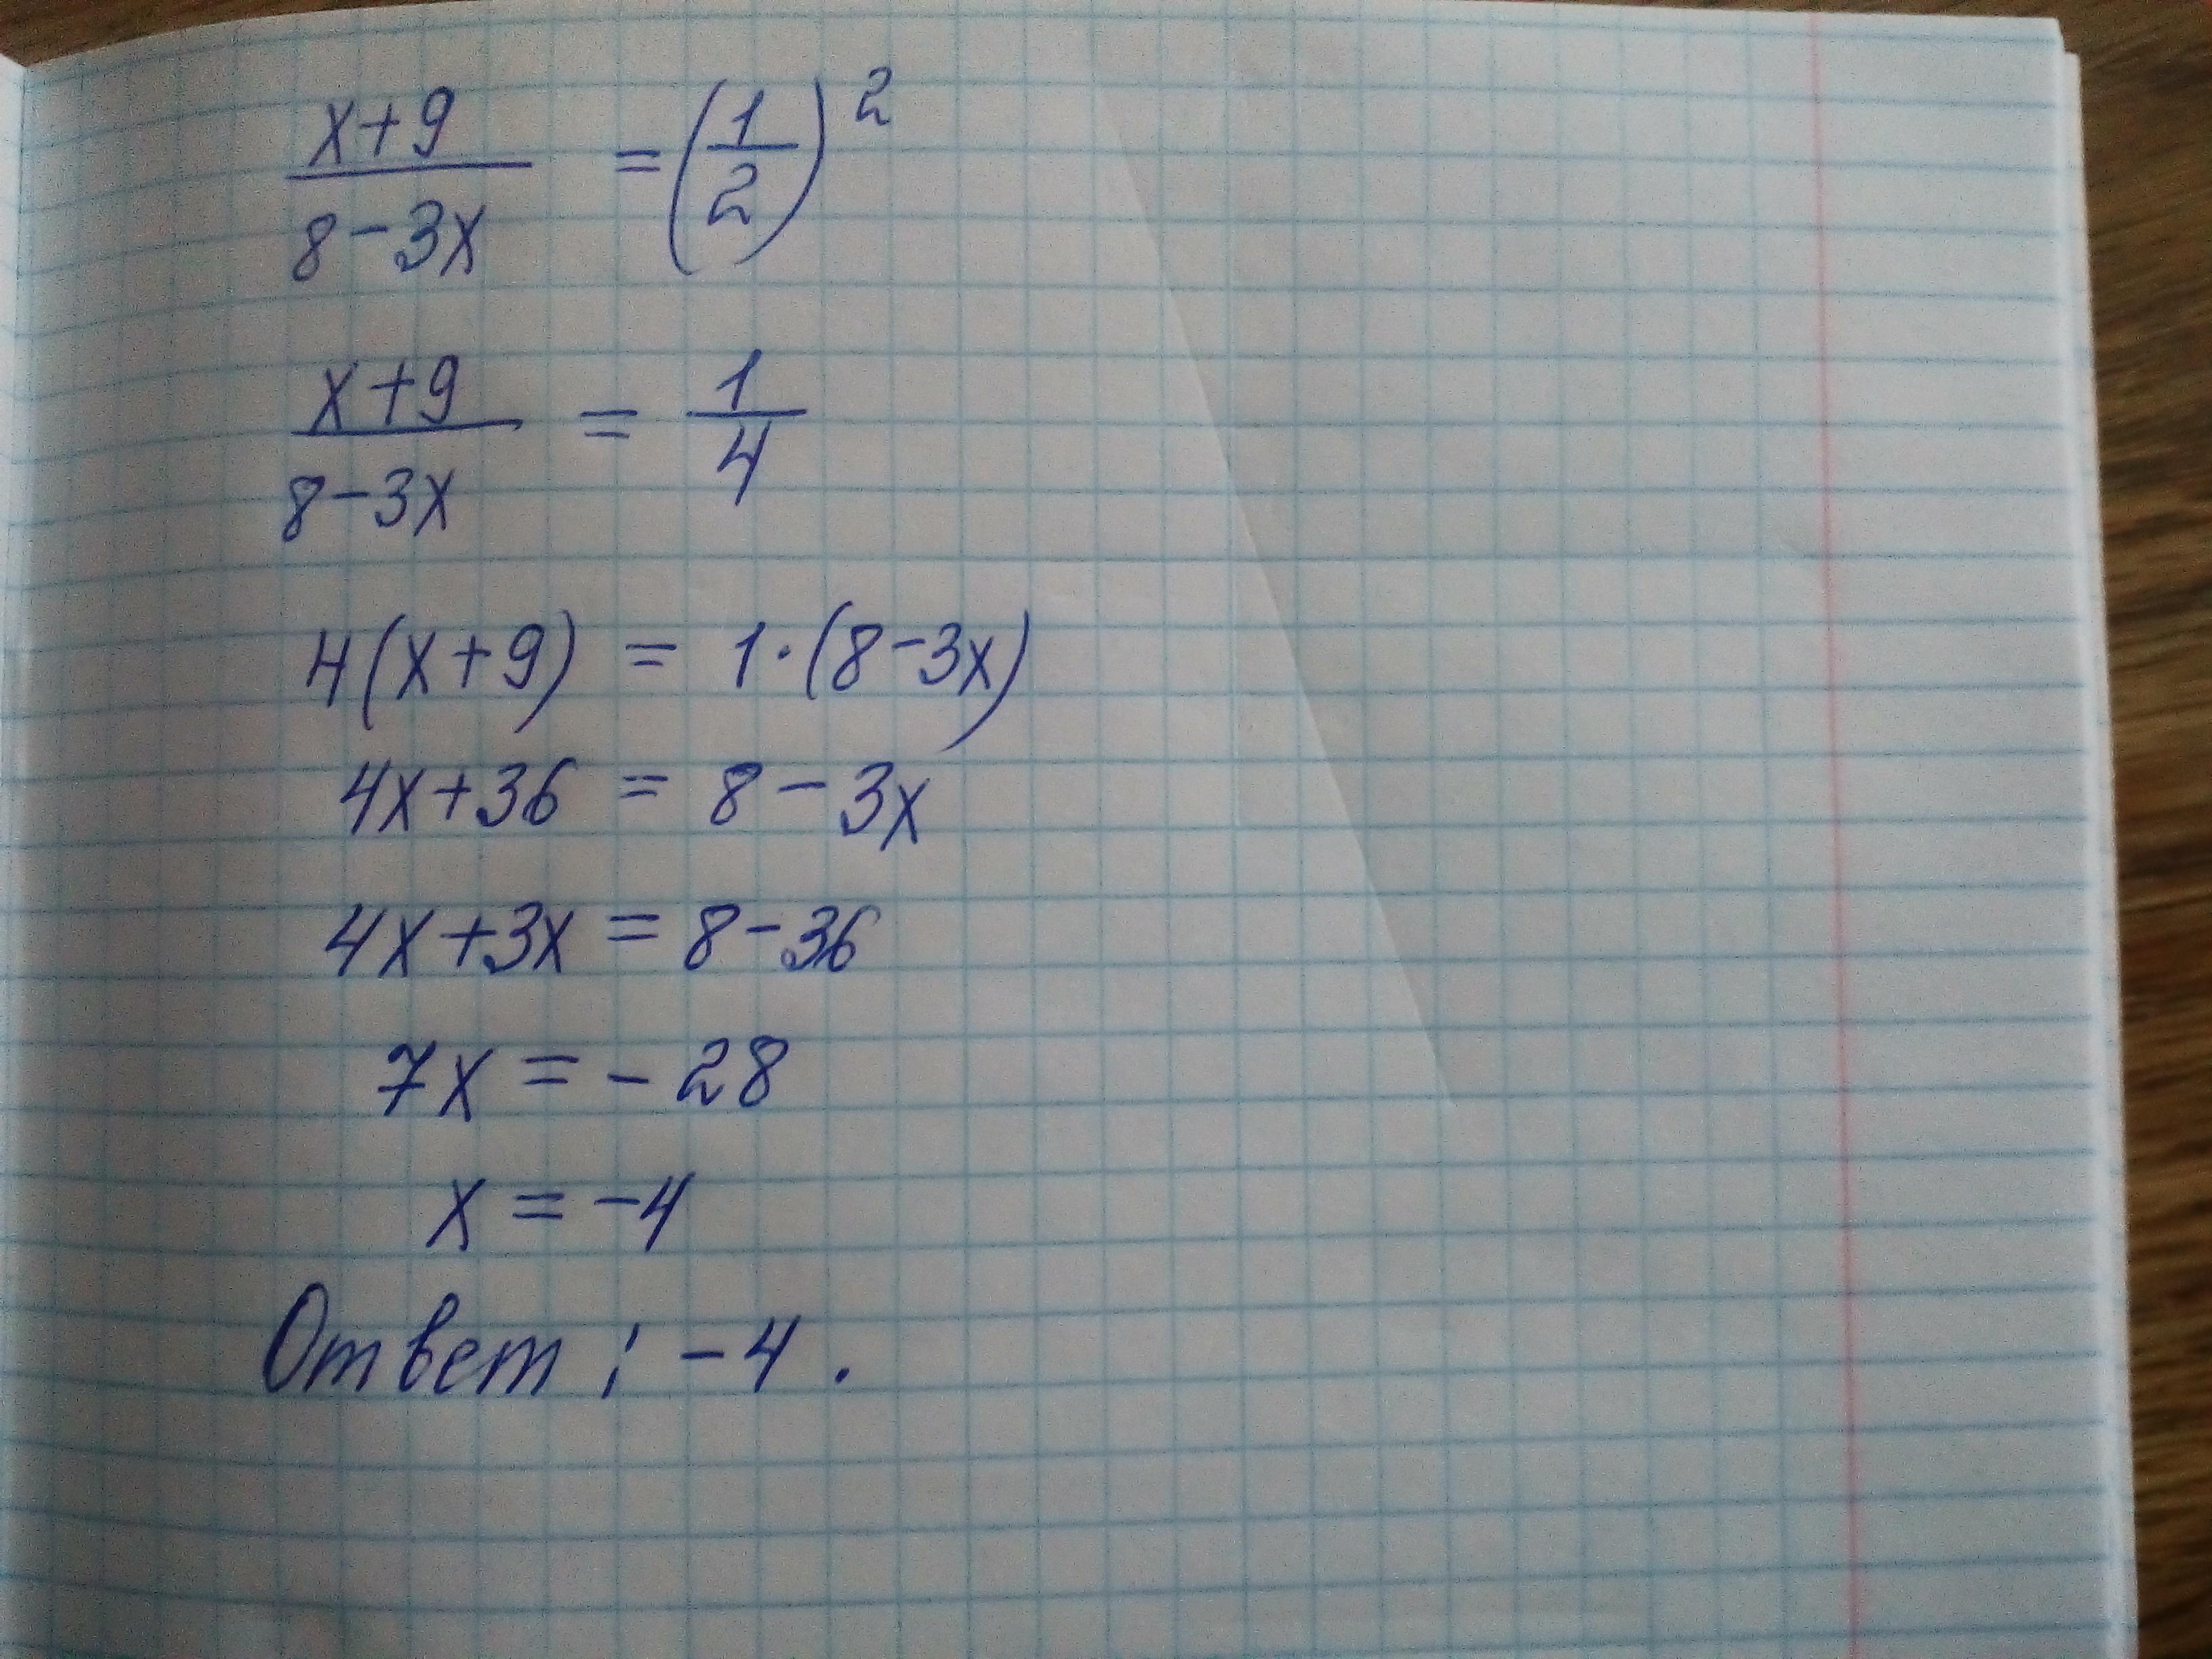 (x+9)/(8-3x) = (1/2)²
(x+9)/(8-3x) = 1/4
4(x+9) = 1·(8-3x)
4x+36 = 8-3x
4x+3x = 8-36
7x = -28
x = -4
Ответ: -4.